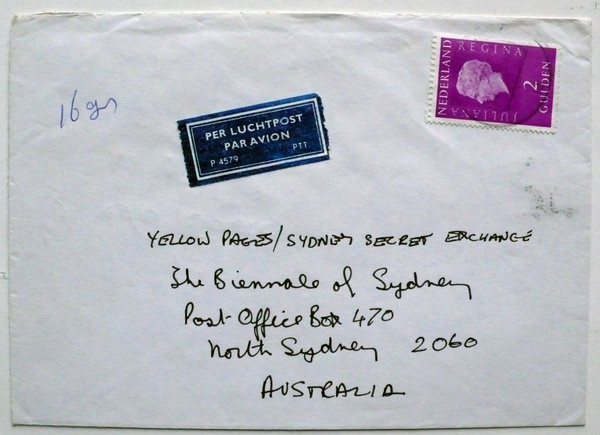 16 gr
NEDERLAND
REGINA
JULIANA
2
GULDEN
PER LUCHTPOST
PAR AVION
P 4579 PTT
YELLOW PAGES/SYDNEY SECRET EXCHANGE
The Biennale of Sydney
Post-Office Box 470
North Sydney 2060
AUSTRALIA